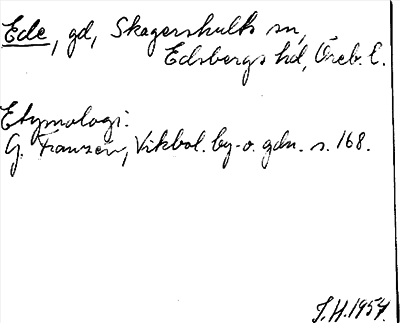 Ede, gd, Skagershults sn,
Edsbergs hd, Öreb. l.
Etymologi:
G. Franzén, Vikbol. by- o. gdn. s. 168.
S.H. 1954.